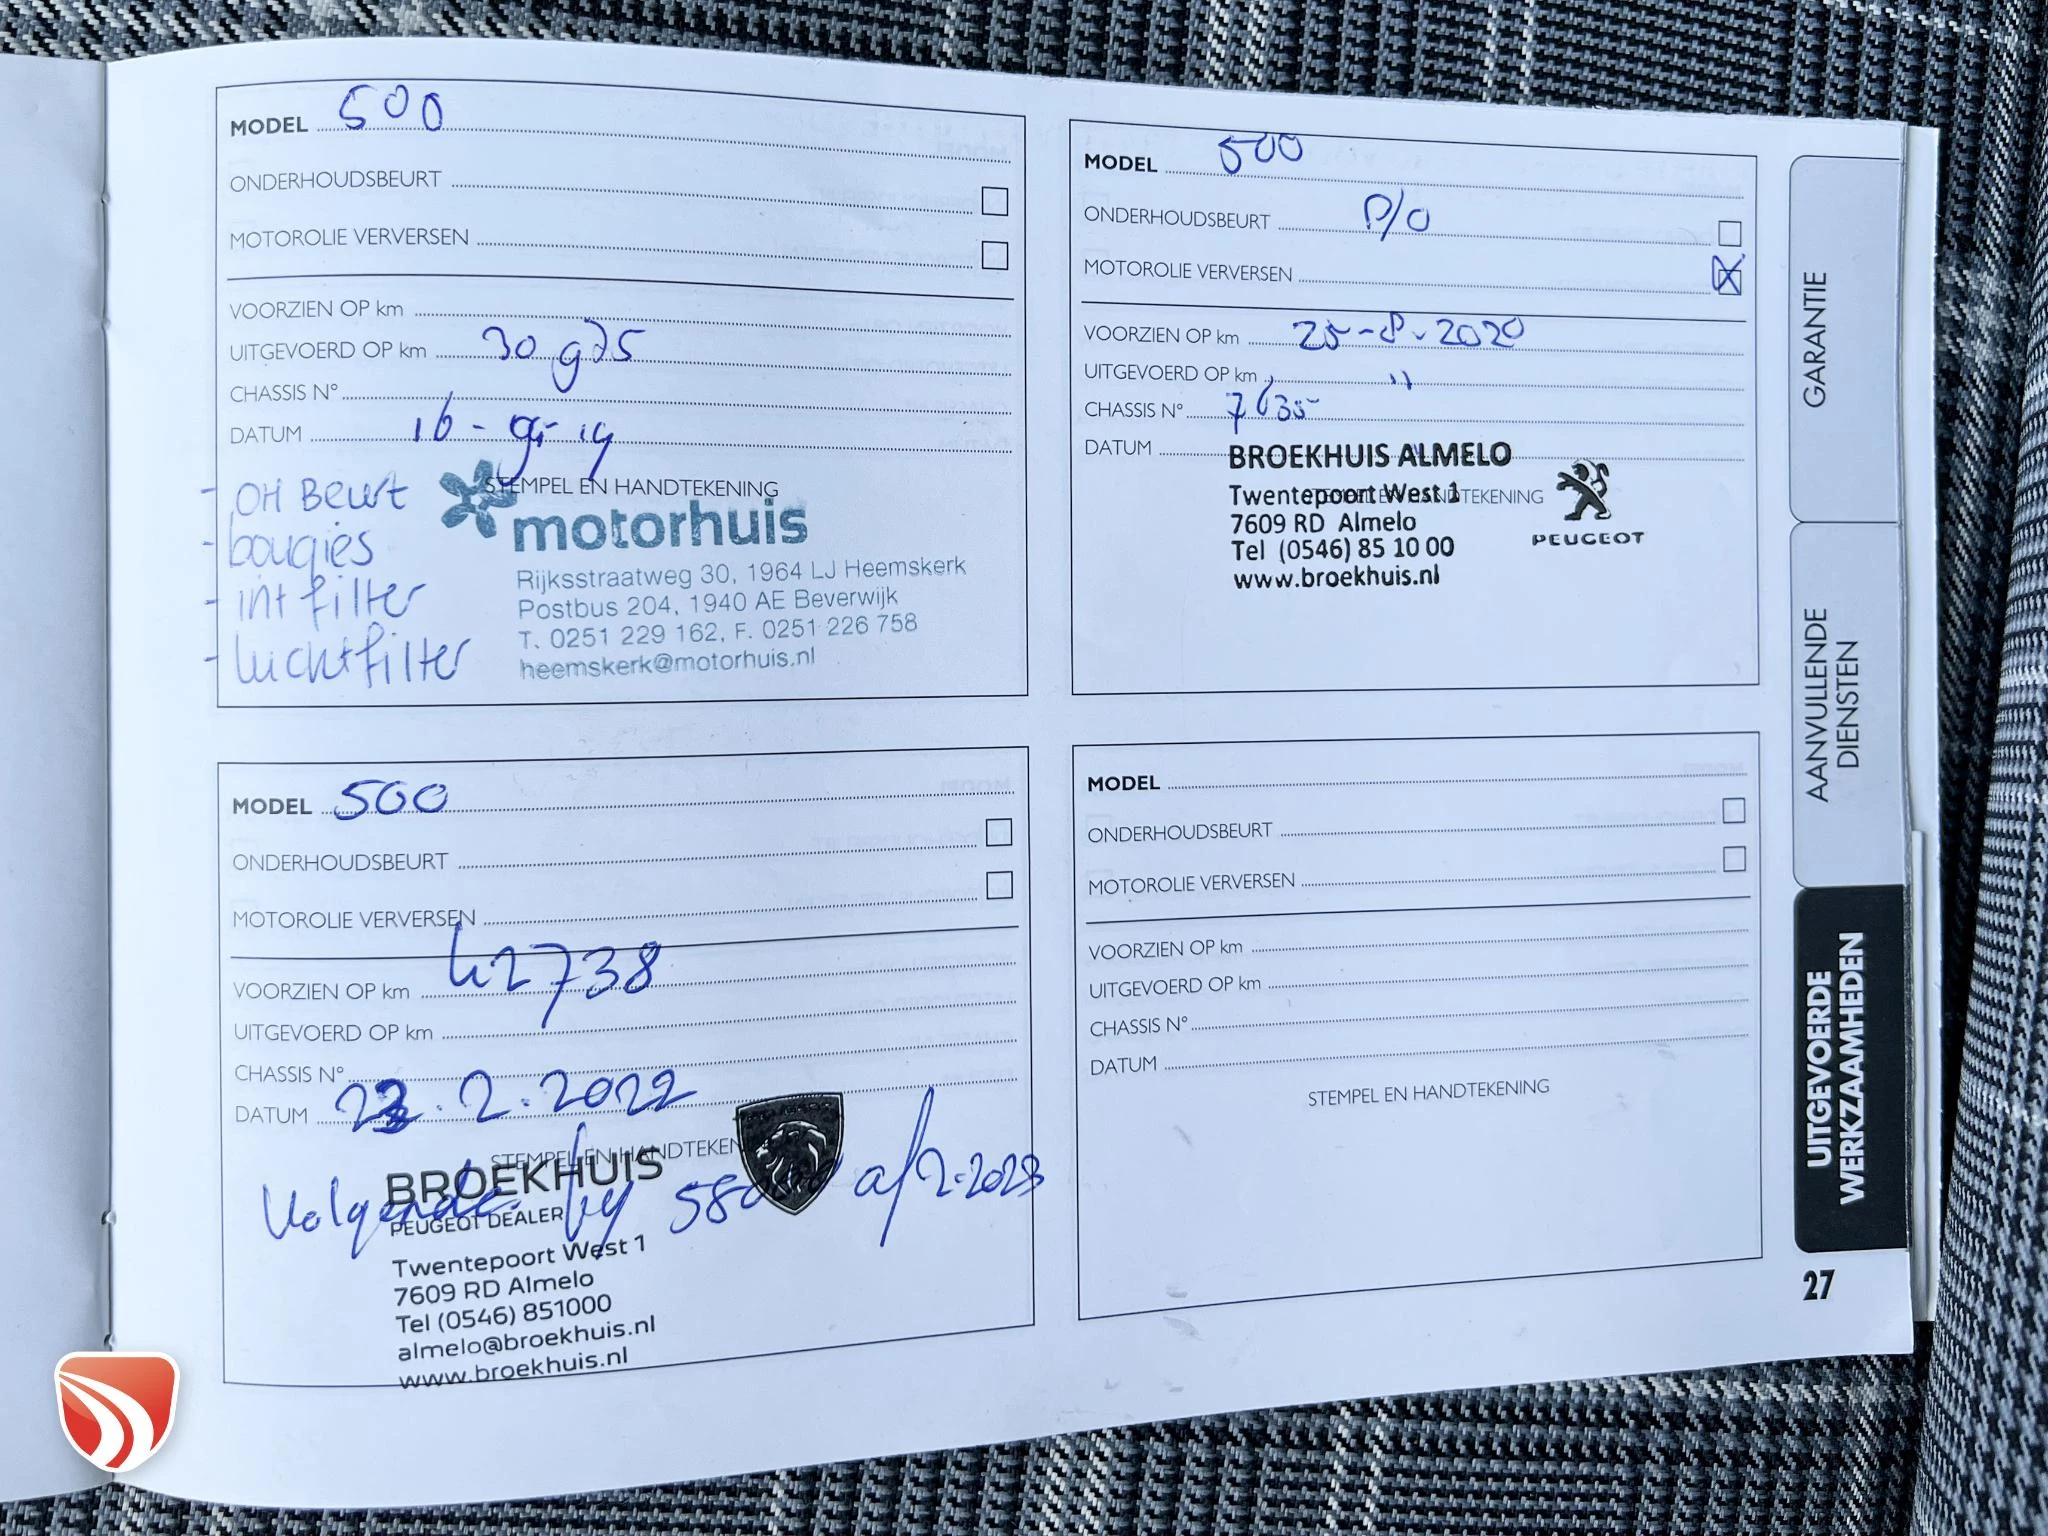 MODEL 500
ONDERHOUDSBEURT
MOTOROLIE VERVERSEN
VOORZIEN OP km
UITGEVOERD OP km 30 975
CHASSIS N°
DATUM 16 - 9 - 19
STEMPEL EN HANDTEKENING
- OH Beurt
- bougies
- int filter
- luchtfilter
motorhuis
Rijksstraatweg 30, 1964 LJ Heemskerk
Postbus 204, 1940 AE Beverwijk
T. 0251 229 162, F. 0251 226 758
heemskerk@motorhuis.nl
MODEL 500
ONDERHOUDSBEURT P/O
MOTOROLIE VERVERSEN X
VOORZIEN OP km 25-8-2020
UITGEVOERD OP km "
CHASSIS N° 7635
DATUM
STEMPEL EN HANDTEKENING
BROEKHUIS ALMELO
Twentepoort West 1
7609 RD Almelo
Tel (0546) 85 10 00
www.broekhuis.nl
PEUGEOT
MODEL 500
ONDERHOUDSBEURT
MOTOROLIE VERVERSEN
VOORZIEN OP km 42738
UITGEVOERD OP km
CHASSIS N°
DATUM 23.2.2022
STEMPEL EN HANDTEKEN
Volgende by 58000 of 2-2023
BROEKHUIS
PEUGEOT DEALER
Twentepoort West 1
7609 RD Almelo
Tel (0546) 851000
almelo@broekhuis.nl
www.broekhuis.nl
MODEL
ONDERHOUDSBEURT
MOTOROLIE VERVERSEN
VOORZIEN OP km
UITGEVOERD OP km
CHASSIS N°
DATUM
STEMPEL EN HANDTEKENING
GARANTIE
AANVULLENDE
DIENSTEN
UITGEVOERDE
WERKZAAMHEDEN
27